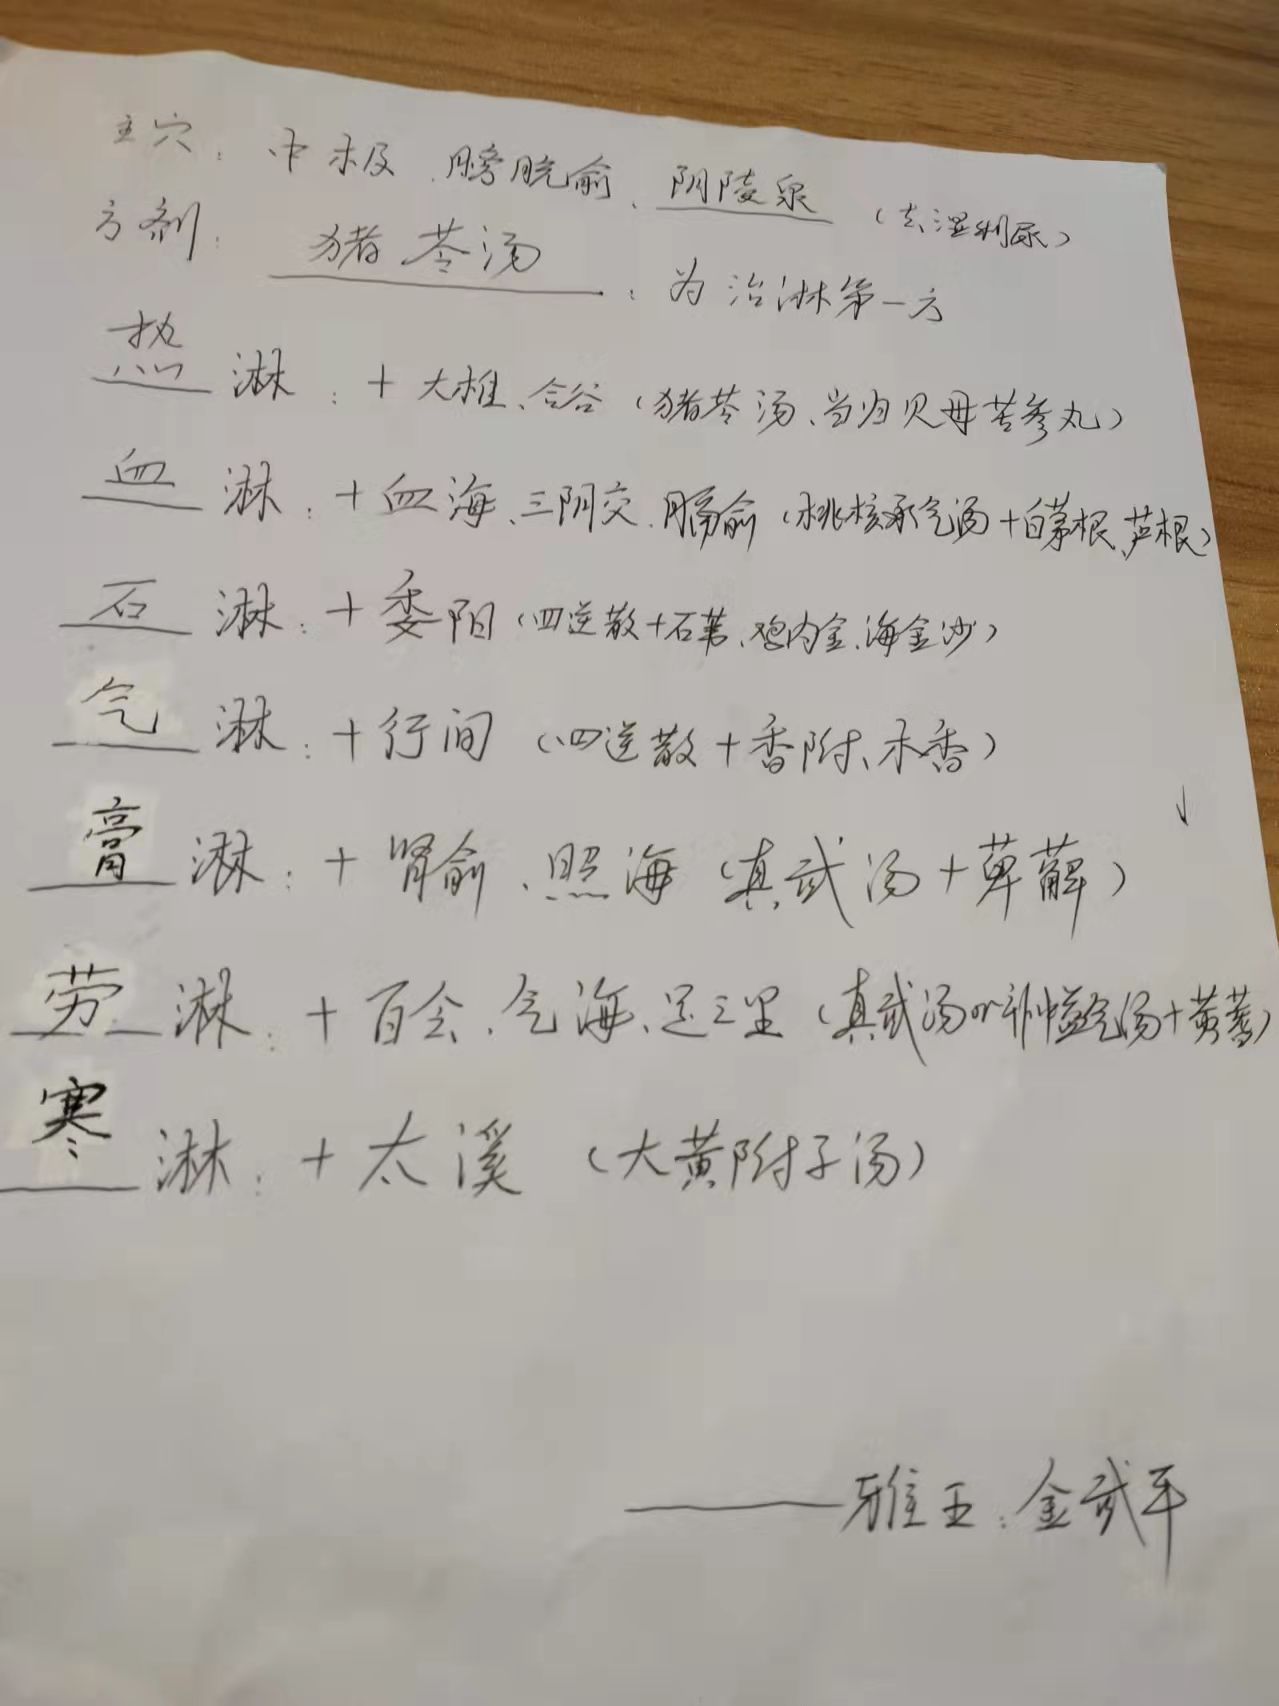 主穴：中极、膀胱俞、阴陵泉（去湿利尿）
方剂：猪苓汤：为治淋第一方
热淋：+大椎、合谷（猪苓汤、当归贝母苦参丸）
血淋：+血海、三阴交、膈俞（桃核承气汤+白茅根、芦根）
石淋：+委阳（四逆散+石苇、鸡内金、海金沙）
气淋：+行间（四逆散+香附、木香）
膏淋：+肾俞、照海（真武汤+萆薢）
劳淋：+百会、气海、足三里（真武汤or补中益气汤+黄蓍）
寒淋：+太溪（大黄附子汤）
——雅玉：金武平